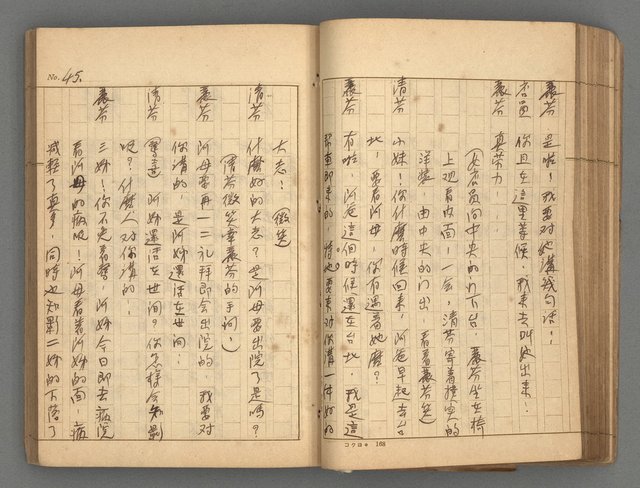 義芬 是啦！我要對她講幾句话！
店員 你且在這里等候，我来去叫她出来．
義芬 真劳力……
（女店員向中央的门下台，義芬坐在椅
上观看内面，一会，清芬穿着樸实的
洋裝 由中央的门出 看着義芬笑
清芬 小妹！你什麼時候回来，阿爸早起去台
北，要看阿母，你有遇着她麼？
義芬 有啦，阿爸這個時候還在台北，我是這
要对你講一件好的
コクヨ 168
No. 45.
大志！ 微笑
清芬 什麼好的大志？是阿母要出院了是嗎？
（清芬微笑牽義芬的手问，）
義芬 阿母要再一二礼拜即会出院的 我要对
你講的，是阿姊還活在世间！
清芬 阿姊還活在世间？你怎樣会知影
呢？什麼人对你講的！
義芬 三姊！你不免着驚，阿姊今日即去病院
看阿母的病呢！阿母看着阿姊的面，病
減輕了真多，同時也知影二姊的下落了